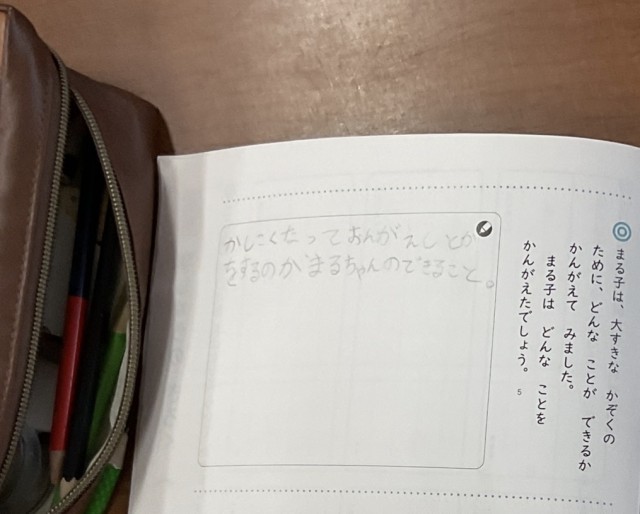 まる子は、大すきな かぞくの
ために、どんな ことが できるか
かんがえて みました。
まる子は どんな ことを
かんがえたでしょう。
5
かしこくなっておんがえしとか
をするのがまるちゃんのできること。